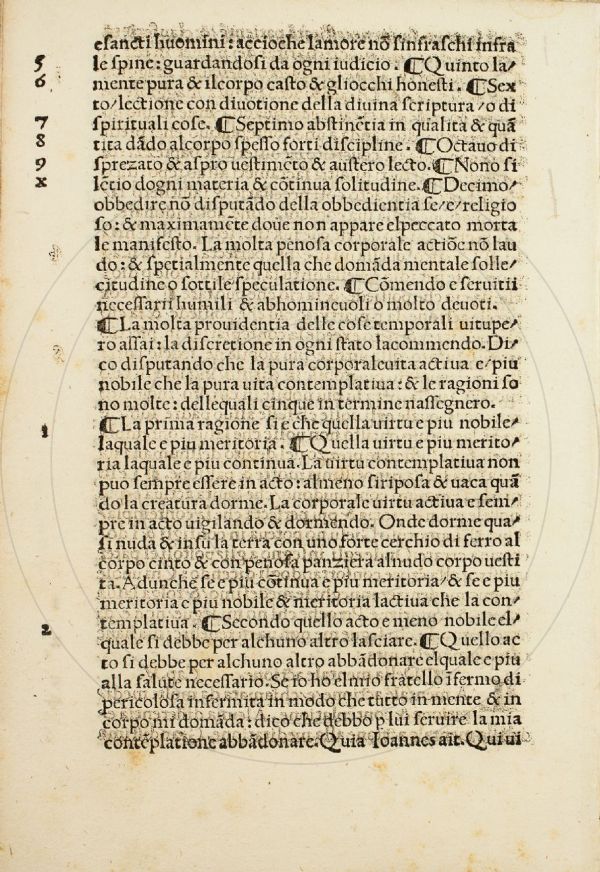 e sancti huomini: accioche lamore nõ sinfraschi infra
5 le spine: guardandosi da ogni iudicio. ¶ Quinto la/
6 mente pura & il corpo casto & gliocchi honesti. ¶ Sex
to/lectione con diuotione della diuina scriptura/o di
7 spirituali cose. ¶ Septimo abstinẽtia in qualita & quã
8 tita dãdo al corpo spesso forti discipline. ¶ Octauo di
9 sprezato & aspro uestimẽto & austero lecto. ¶ Nono si
x lẽtio dogni materia & cõtinua solitudine. ¶ Decimo/
obbedire nõ disputãdo della obbedientia se/e/religio
so: & maximamẽte doue non appare elpeccato morta
le manifesto. La molta penosa corporale actiõe nõ lau
do: & spetialmente quella che domãda mentale solle/
citudine o sottile speculatione. ¶ Cõmendo e seruitii
necessarii humili & abhomineuoli o molto deuoti.
¶ La molta prouidentia delle cose temporali uitupe/
ro assai: la discretione in ogni stato lacommendo. Di
co disputando che la pura corporale uita actiua e/piu
nobile che la pura uita contemplatiua: & le ragioni so
no molte: dellequali cinque in termine riassegnero.
1 ¶ La prima ragione si e che quella uirtu e piu nobile/
laquale e piu meritoria. ¶ Quella uirtu e piu merito/
ria laquale e piu continua. La uirtu contemplatiua non
puo sempre essere in acto: almeno si riposa & uaca quã
do la creatura dorme. La corporale uirtu actiua e sem/
pre in acto uigilando & dormendo. Onde dorme qua/
si nuda & insu la terra con uno forte cerchio di ferro al
corpo cinto & con penosa panziera alnudo corpo uesti
ta. Adunche se e piu cõtinua e piu meritoria/& se e piu
meritoria e piu nobile & meritoria lactiua che la con/
2 templatiua. ¶ Secondo quello acto e meno nobile el/
quale si debbe per alchuno altro lasciare. ¶ Quello ac
to si debbe per alchuno altro abbãdonare elquale e piu
alla salute necessario. Se io ho elmio fratello ĩfermo di
pericolosa infermita in modo che tutto in mente & in
corpo mi domãda: dico che debbo p lui seruire la mia
contẽplatione abbãdonare. Quia Ioannes ait. Qui ui